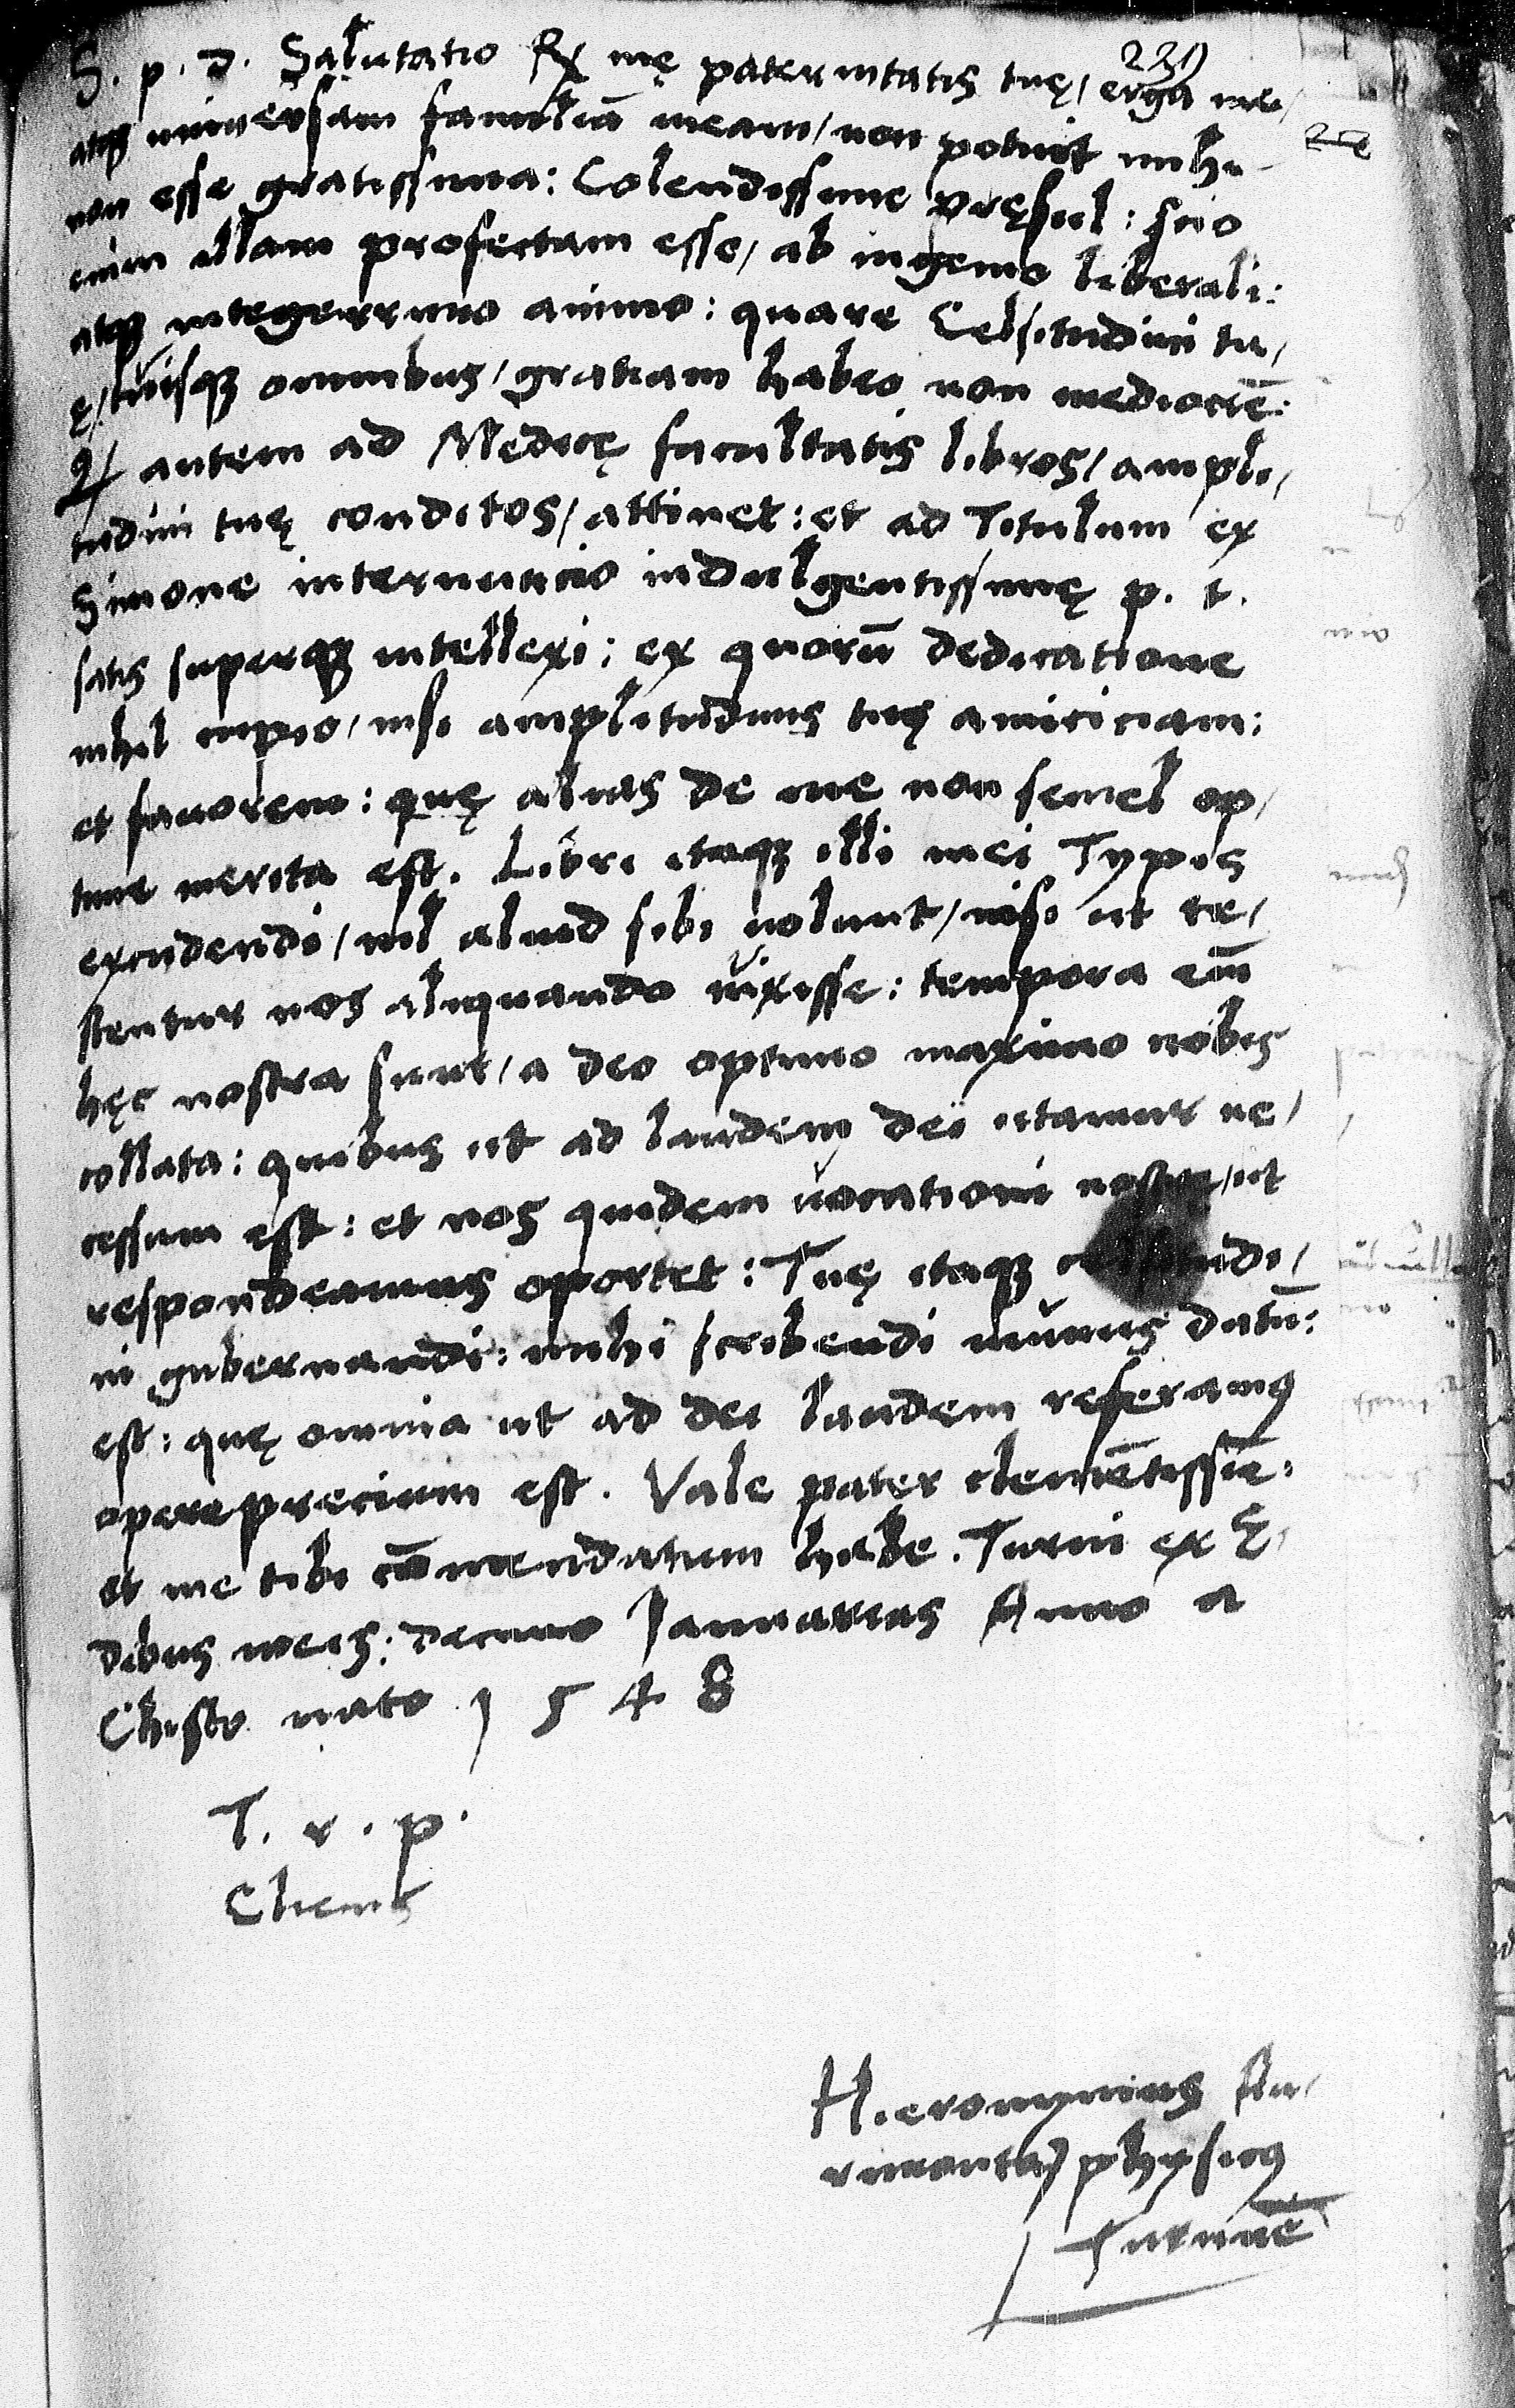 231
S. p. d. Salutatio Rx mę paternitatis tuę/ erga me/
atqꝫ uniuersam familiā meam/ non potuit mihi
non esse gratissima: Colendissime pręsul: scio
enim illam profectam esse/ ab ingenio liberali:
atqꝫ integerrimo animo: quare Celsitudini tu/
ę/ tuisqꝫ omnibus/ gratiam habeo non mediocrē:
Q autem ad Medicę facultatis libros/ ampli/
tudini tuę conditos/ attinet: et ad Titulum ex
Simone internuncio indulgentissimę p. t.
satis superqꝫ intellexi: ex quorū dedicatione
nihil cupio/ nisi amplitudinis tuę amiciciam:
et fauorem: quę alias de me non semel op/
time merita est. Libri itaqꝫ illi mei Typis
excudendi/ nil aliud sibi uolunt/ nisi ut te/
stentur nos aliquando uixisse: tempora em̄
hęc nostra sunt/ a deo optimo maximo nobis
collata: quibus ut ad laudem dei utamur ne/
cessum est: et nos quidem uocationi nostre/ ut
respondeamus oportet: Tuę itaqꝫ celsitudi/
ni gubernandi: mihi scribendi munus datū:
est: quę omnia ut ad dei laudem referamꝰ
operepreciuum est. Vale pater clemētissīe:
et me tibi cōmendatum habe. Turni ex Ę/
dibus meis: decimo Januarias Anno a
Christo nato 1548
T. r. p.
Cliens
Hieronymus Ar/
rmenta physicꝰ
Turinē